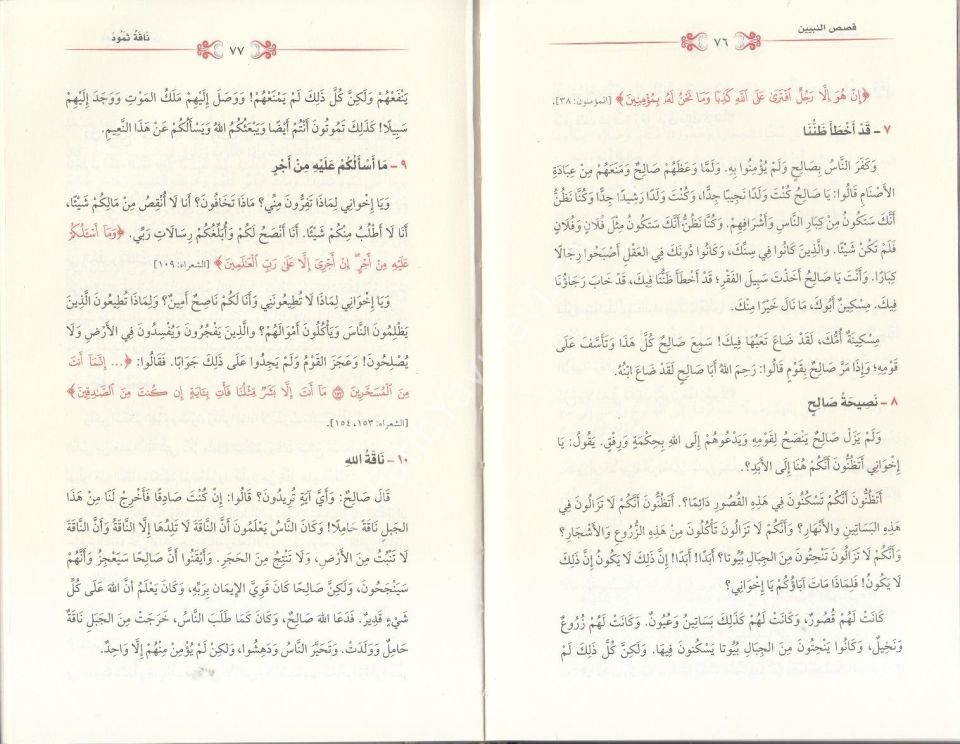 قصص النبيين
٧٦
﴿إِنْ هُوَ إِلَّا رَجُلٌ افْتَرَىٰ عَلَى اللَّهِ كَذِبًا وَمَا نَحْنُ لَهُ بِمُؤْمِنِينَ﴾ [المؤمنون: ٣٨].
٧ - قَدْ أَخْطَأَ ظَنُّنَا
وَكَفَرَ النَّاسُ بِصَالِحٍ وَلَمْ يُؤْمِنُوا بِهِ. وَلَمَّا وَعَظَهُمْ صَالِحٌ وَمَنَعَهُمْ مِنْ عِبَادَةِ
الأَصْنَامِ قَالُوا: يَا صَالِحُ كُنْتَ وَلَدًا نَجِيبًا جِدًّا، وَكُنْتَ وَلَدًا رَشِيدًا جِدًّا وَكُنَّا نَظُنُّ
أَنَّكَ سَتَكُونُ مِنْ كِبَارِ النَّاسِ وَأَشْرَافِهِمْ. وَكُنَّا نَظُنُّ أَنَّكَ سَتَكُونُ مِثْلَ فُلَانٍ وَفُلَانٍ
فَلَمْ تَكُنْ شَيْئًا. وَالَّذِينَ كَانُوا فِي سِنِّكَ، وَكَانُوا دُونَكَ فِي العَقْلِ أَصْبَحُوا رِجَالًا
كِبَارًا. وَأَنْتَ يَا صَالِحُ أَخَذْتَ سَبِيلَ الفَقْرِ؛ قَدْ أَخْطَأَ ظَنُّنَا فِيكَ، قَدْ خَابَ رَجَاؤُنَا
فِيكَ. مِسْكِينٌ أَبُوكَ مَا نَالَ خَيْرًا مِنْكَ.
مِسْكِينَةٌ أُمُّكَ، لَقَدْ ضَاعَ تَعَبُهَا فِيكَ! سَمِعَ صَالِحٌ كُلَّ هَذَا وَتَأَسَّفَ عَلَى
قَوْمِهِ؛ وَإِذَا مَرَّ صَالِحٌ بِقَوْمٍ قَالُوا: رَحِمَ اللهُ أَبَا صَالِحٍ لَقَدْ ضَاعَ ابْنُهُ.
٨ - نَصِيحَةُ صَالِحٍ
وَلَمْ يَزَلْ صَالِحٌ يَنْصَحُ لِقَوْمِهِ وَيَدْعُوهُمْ إِلَى اللهِ بِحِكْمَةٍ وَرِفْقٍ. يَقُولُ: يَا
إِخْوَانِي أَتَظُنُّونَ أَنَّكُمْ هُنَا إِلَى الأَبَدِ؟.
أَتَظُنُّونَ أَنَّكُمْ تَسْكُنُونَ فِي هَذِهِ القُصُورِ دَائِمًا؟. أَتَظُنُّونَ أَنَّكُمْ لَا تَزَالُونَ فِي
هَذِهِ البَسَاتِينِ وَالأَنْهَارِ؟ وَأَنَّكُمْ لَا تَزَالُونَ تَأْكُلُونَ مِنْ هَذِهِ الزُّرُوعِ وَالأَشْجَارِ؟
وَأَنَّكُمْ لَا تَزَالُونَ تَنْحِتُونَ مِنَ الجِبَالِ بُيُوتًا؟ أَبَدًا! أَبَدًا! إِنَّ ذَلِكَ لَا يَكُونُ إِنَّ ذَلِكَ
لَا يَكُونُ! فَلِمَاذَا مَاتَ آبَاؤُكُمْ يَا إِخْوَانِي؟
كَانَتْ لَهُمْ قُصُورٌ، وَكَانَتْ لَهُمْ كَذَلِكَ بَسَاتِينُ وَعُيُونٌ. وَكَانَتْ لَهُمْ زُرُوعٌ
وَنَخِيلٌ، وَكَانُوا يَنْحِتُونَ مِنَ الجِبَالِ بُيُوتًا يَسْكُنُونَ فِيهَا. وَلَكِنَّ كُلَّ ذَلِكَ لَمْ
نَاقَةُ ثَمُودَ
٧٧
يَنْفَعْهُمْ وَلَكِنَّ كُلَّ ذَلِكَ لَمْ يَمْنَعْهُمْ! وَوَصَلَ إِلَيْهِمْ مَلَكُ المَوْتِ وَوَجَدَ إِلَيْهِمْ
سَبِيلًا! كَذَلِكَ تَمُوتُونَ أَنْتُمْ أَيْضًا وَيَبْعَثُكُمُ اللهُ وَيَسْأَلُكُمْ عَنْ هَذَا النَّعِيمِ.
٩ - مَا أَسْأَلُكُمْ عَلَيْهِ مِنْ أَجْرٍ
وَيَا إِخْوَانِي لِمَاذَا تَفِرُّونَ مِنِّي؟ مَاذَا تَخَافُونَ؟ أَنَا لَا أَنْقُصُ مِنْ مَالِكُمْ شَيْئًا،
أَنَا لَا أَطْلُبُ مِنْكُمْ شَيْئًا. أَنَا أَنْصَحُ لَكُمْ وَأُبَلِّغُكُمْ رِسَالَاتِ رَبِّي. ﴿وَمَا أَسْـَٔلُكُمْ
عَلَيْهِ مِنْ أَجْرٍ ۖ إِنْ أَجْرِيَ إِلَّا عَلَىٰ رَبِّ الْعَٰلَمِينَ﴾ [الشعراء: ١٠٩]
وَيَا إِخْوَانِي لِمَاذَا لَا تُطِيعُونَنِي وَأَنَا لَكُمْ نَاصِحٌ أَمِينٌ؟ وَلِمَاذَا تُطِيعُونَ الَّذِينَ
يَظْلِمُونَ النَّاسَ وَيَأْكُلُونَ أَمْوَالَهُمْ؟ وَالَّذِينَ يَفْجُرُونَ وَيُفْسِدُونَ فِي الأَرْضِ وَلَا
يُصْلِحُونَ! وَعَجَزَ القَوْمُ وَلَمْ يَجِدُوا عَلَى ذَلِكَ جَوَابًا. فَقَالُوا: ﴿... إِنَّمَا أَنْتَ
مِنَ الْمُسَحَّرِينَ ١٥٣ مَا أَنْتَ إِلَّا بَشَرٌ مِثْلُنَا فَأْتِ بِآيَةٍ إِنْ كُنْتَ مِنَ الصَّٰدِقِينَ﴾
[الشعراء: ١٥٣، ١٥٤].
١٠ - نَاقَةُ اللهِ
قَالَ صَالِحٌ: وَأَيَّ آيَةٍ تُرِيدُونَ؟ قَالُوا: إِنْ كُنْتَ صَادِقًا فَأَخْرِجْ لَنَا مِنْ هَذَا
الجَبَلِ نَاقَةً حَامِلًا! وَكَانَ النَّاسُ يَعْلَمُونَ أَنَّ النَّاقَةَ لَا تَلِدُهَا إِلَّا النَّاقَةُ وَأَنَّ النَّاقَةَ
لَا تَنْبُتُ مِنَ الأَرْضِ، وَلَا تَنْتِجُ مِنَ الحَجَرِ. وَأَيْقَنُوا أَنَّ صَالِحًا سَيَعْجِزُ وَأَنَّهُمْ
سَيَنْجَحُونَ، وَلَكِنَّ صَالِحًا كَانَ قَوِيَّ الإِيمَانِ بِرَبِّهِ، وَكَانَ يَعْلَمُ أَنَّ اللهَ عَلَى كُلِّ
شَيْءٍ قَدِيرٌ. فَدَعَا اللهَ صَالِحٌ، وَكَانَ كَمَا طَلَبَ النَّاسُ، خَرَجَتْ مِنَ الجَبَلِ نَاقَةٌ
حَامِلٌ وَوَلَدَتْ. وَتَحَيَّرَ النَّاسُ وَدَهِشُوا، وَلَكِنْ لَمْ يُؤْمِنْ مِنْهُمْ إِلَّا وَاحِدٌ.